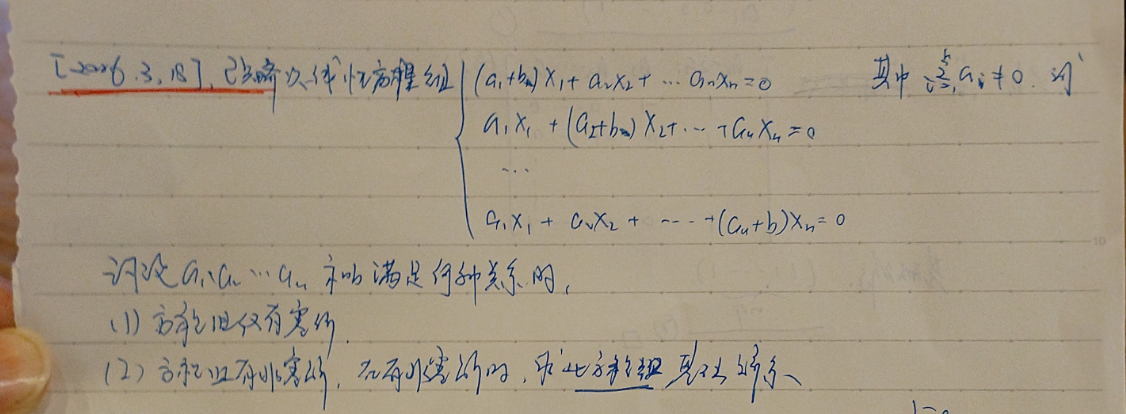 [2006.3,18]. 已知齐次线性方程组 { (a₁+b)x₁+a₂x₂+…aₙxₙ=0 其中 ∑ᵢ₌₁ⁿaᵢ≠0. 试
a₁x₁+(a₂+b)x₂+…+aₙxₙ=0
…
a₁x₁+a₂x₂+----+(aₙ+b)xₙ=0
讨论a₁,a₂…aₙ和b满足何种关系时,
(1)方程组仅有零解
(2)方程组有非零解,在有非零解时,求此方程组基础解系、